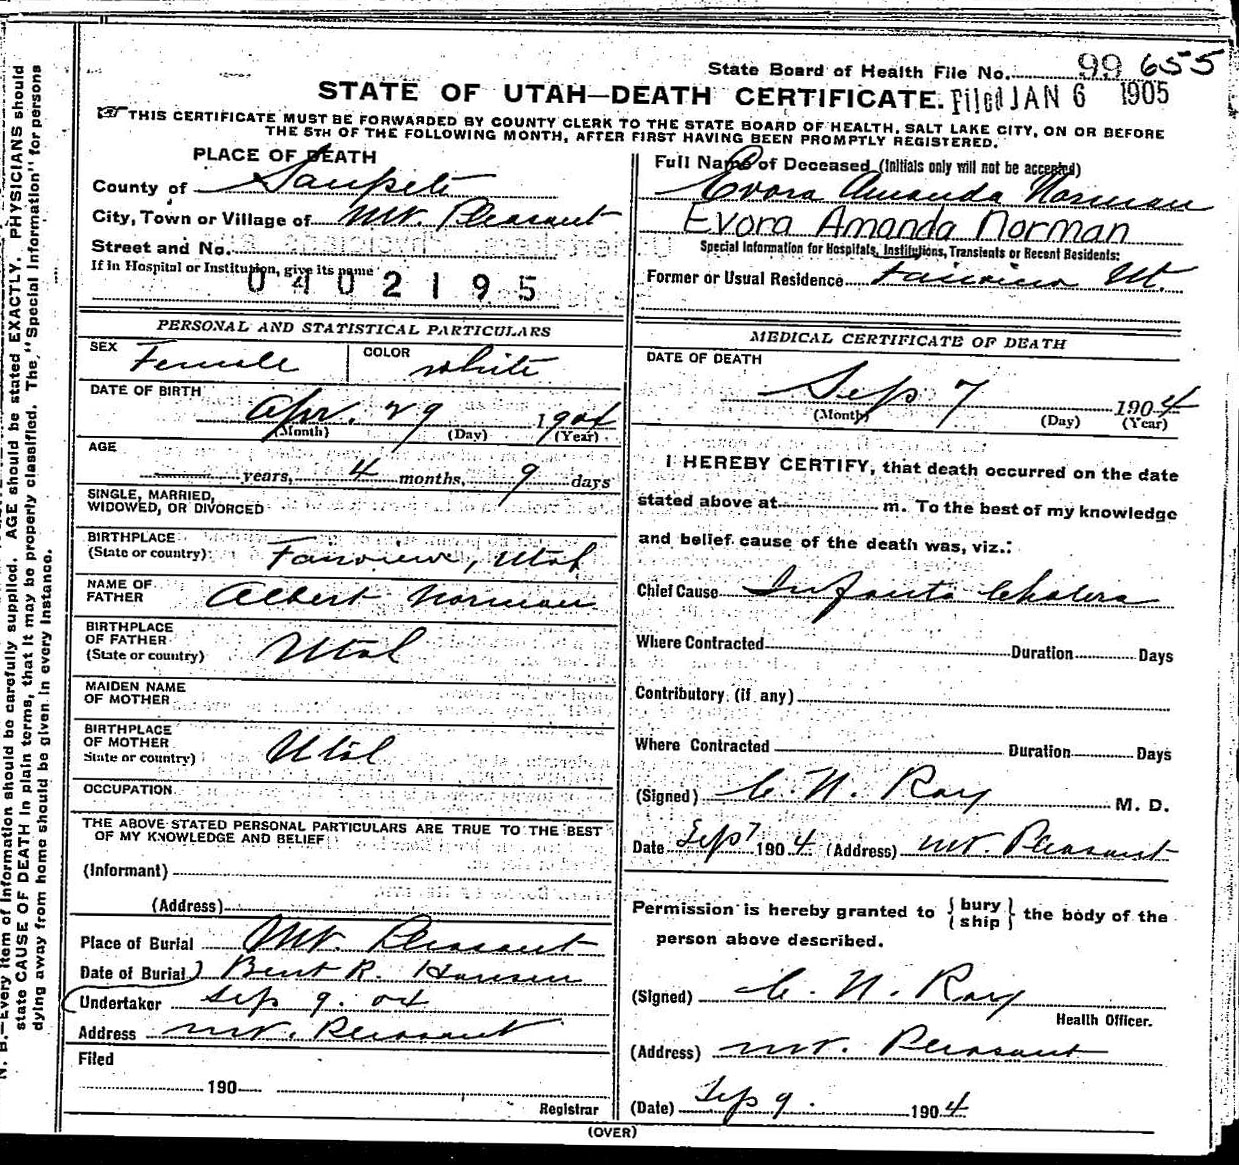 State Board of Health File No. 99 655
STATE OF UTAH—DEATH CERTIFICATE. Filed JAN 6 1905
THIS CERTIFICATE MUST BE FORWARDED BY COUNTY CLERK TO THE STATE BOARD OF HEALTH, SALT LAKE CITY, ON OR BEFORE
THE 5TH OF THE FOLLOWING MONTH, AFTER FIRST HAVING BEEN PROMPTLY REGISTERED.
PLACE OF DEATH
County of Sanpete
City, Town or Village of Mt. Pleasant
Street and No.
If in Hospital or Institution, give its name
0402195
PERSONAL AND STATISTICAL PARTICULARS
SEX Female COLOR white
DATE OF BIRTH
Apr. 29 1904
(Month) (Day) (Year)
AGE
years, 4 months, 9 days
SINGLE, MARRIED,
WIDOWED, OR DIVORCED
BIRTHPLACE
(State or country) Fairview, Utah
NAME OF
FATHER Albert Norman
BIRTHPLACE
OF FATHER
(State or country) Utah
MAIDEN NAME
OF MOTHER
BIRTHPLACE
OF MOTHER
State or country) Utah
OCCUPATION
THE ABOVE STATED PERSONAL PARTICULARS ARE TRUE TO THE BEST
OF MY KNOWLEDGE AND BELIEF
(Informant)
(Address)
Place of Burial Mt. Pleasant
Date of Burial) Bent R. Hansen
Undertaker Sep 9. 04
Address Mt. Pleasant
Filed
190
Registrar
Full Name of Deceased (Initials only will not be accepted)
Evora Amanda Norman
Evora Amanda Norman
Special Information for Hospitals, Institutions, Transients or Recent Residents:
Former or Usual Residence Fairview Ut.
MEDICAL CERTIFICATE OF DEATH
DATE OF DEATH
Sep 7 1904
(Month) (Day) (Year)
I HEREBY CERTIFY, that death occurred on the date
stated above at m. To the best of my knowledge
and belief cause of the death was, viz.:
Chief Cause Infants Cholera
Where Contracted Duration Days
Contributory (if any)
Where Contracted Duration Days
(Signed) C. N. Ray M. D.
Date Sep 7 1904 (Address) Mt. Pleasant
Permission is hereby granted to {bury
ship} the body of the
person above described.
(Signed) C. N. Ray
Health Officer.
(Address) Mt. Pleasant
(Date) Sep 9. 1904
(OVER)
N. B.—Every item of information should be carefully supplied. AGE should be stated EXACTLY. PHYSICIANS should
state CAUSE OF DEATH in plain terms, that it may be properly classified. The "Special Information" for persons
dying away from home should be given in every instance.